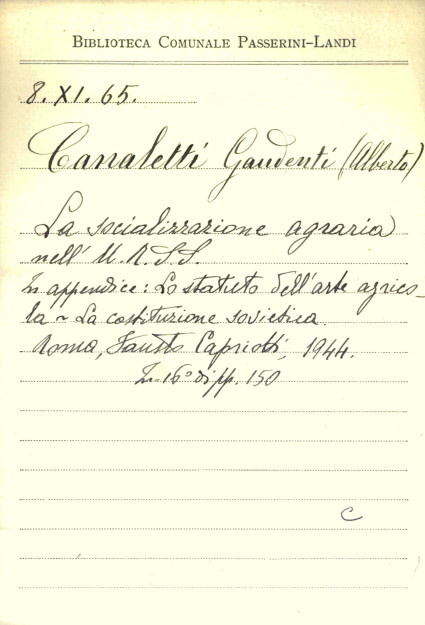 BIBLIOTECA COMUNALE PASSERINI-LANDI
8. XI. 65.
Canaletti Gaudenti (Alberto)
La socializzazione agraria
nell' U.R.S.S.
In appendice: Lo statuto dell'arte agrico-
la ~ La costituzione sovietica.
Roma, Fausto Capriotti, 1944.
In-16° di pp. 150
C